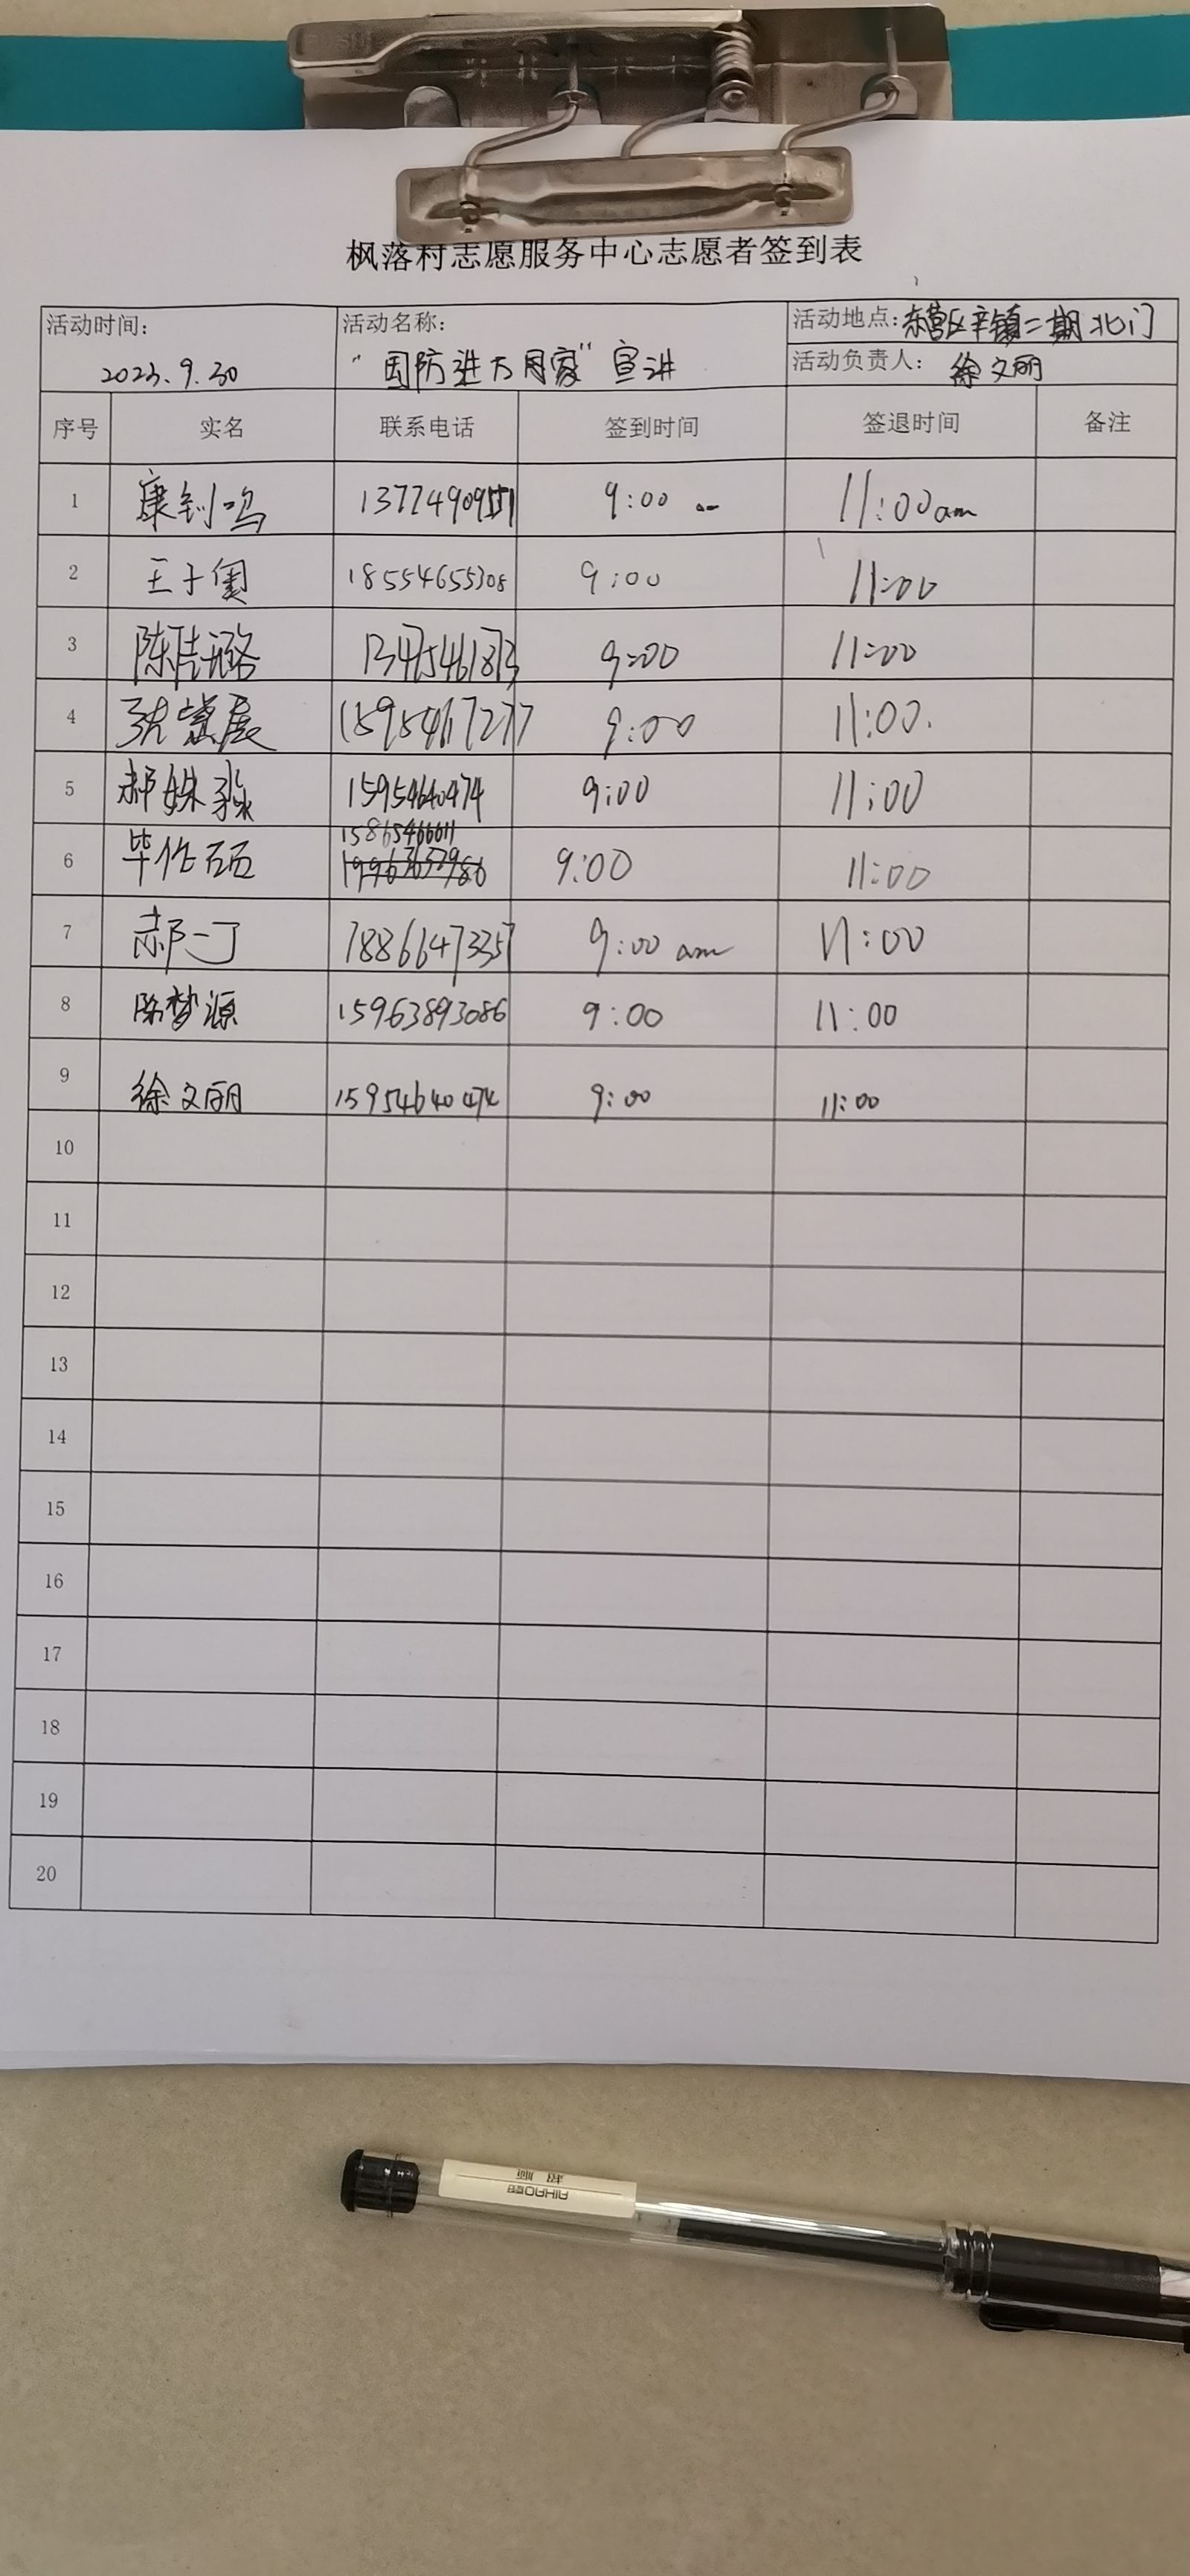 枫落村志愿服务中心志愿者签到表
活动时间: 活动名称: 活动地点: 东营区辛镇二期北门
2023.9.30 "国防进万居家"宣讲 活动负责人: 徐文丽
序号 实名 联系电话 签到时间 签退时间 备注
1 康钊鸣 9:00 11:00am
2 王子奥 18554655308 9:00 11:00
3 9:00 11:00
4 15954617277 9:00 11:00.
5 郝姝淼 15954640474 9:00 11:00
15865466011
6 毕作硕 9:00 11:00
7 郝一丁 9:00 am 11:00
8 陈梦源 15963893086 9:00 11:00
9 徐文丽 15954640474 9:00 11:00
10
11
12
13
14
15
16
17
18
19
20
AIHAO